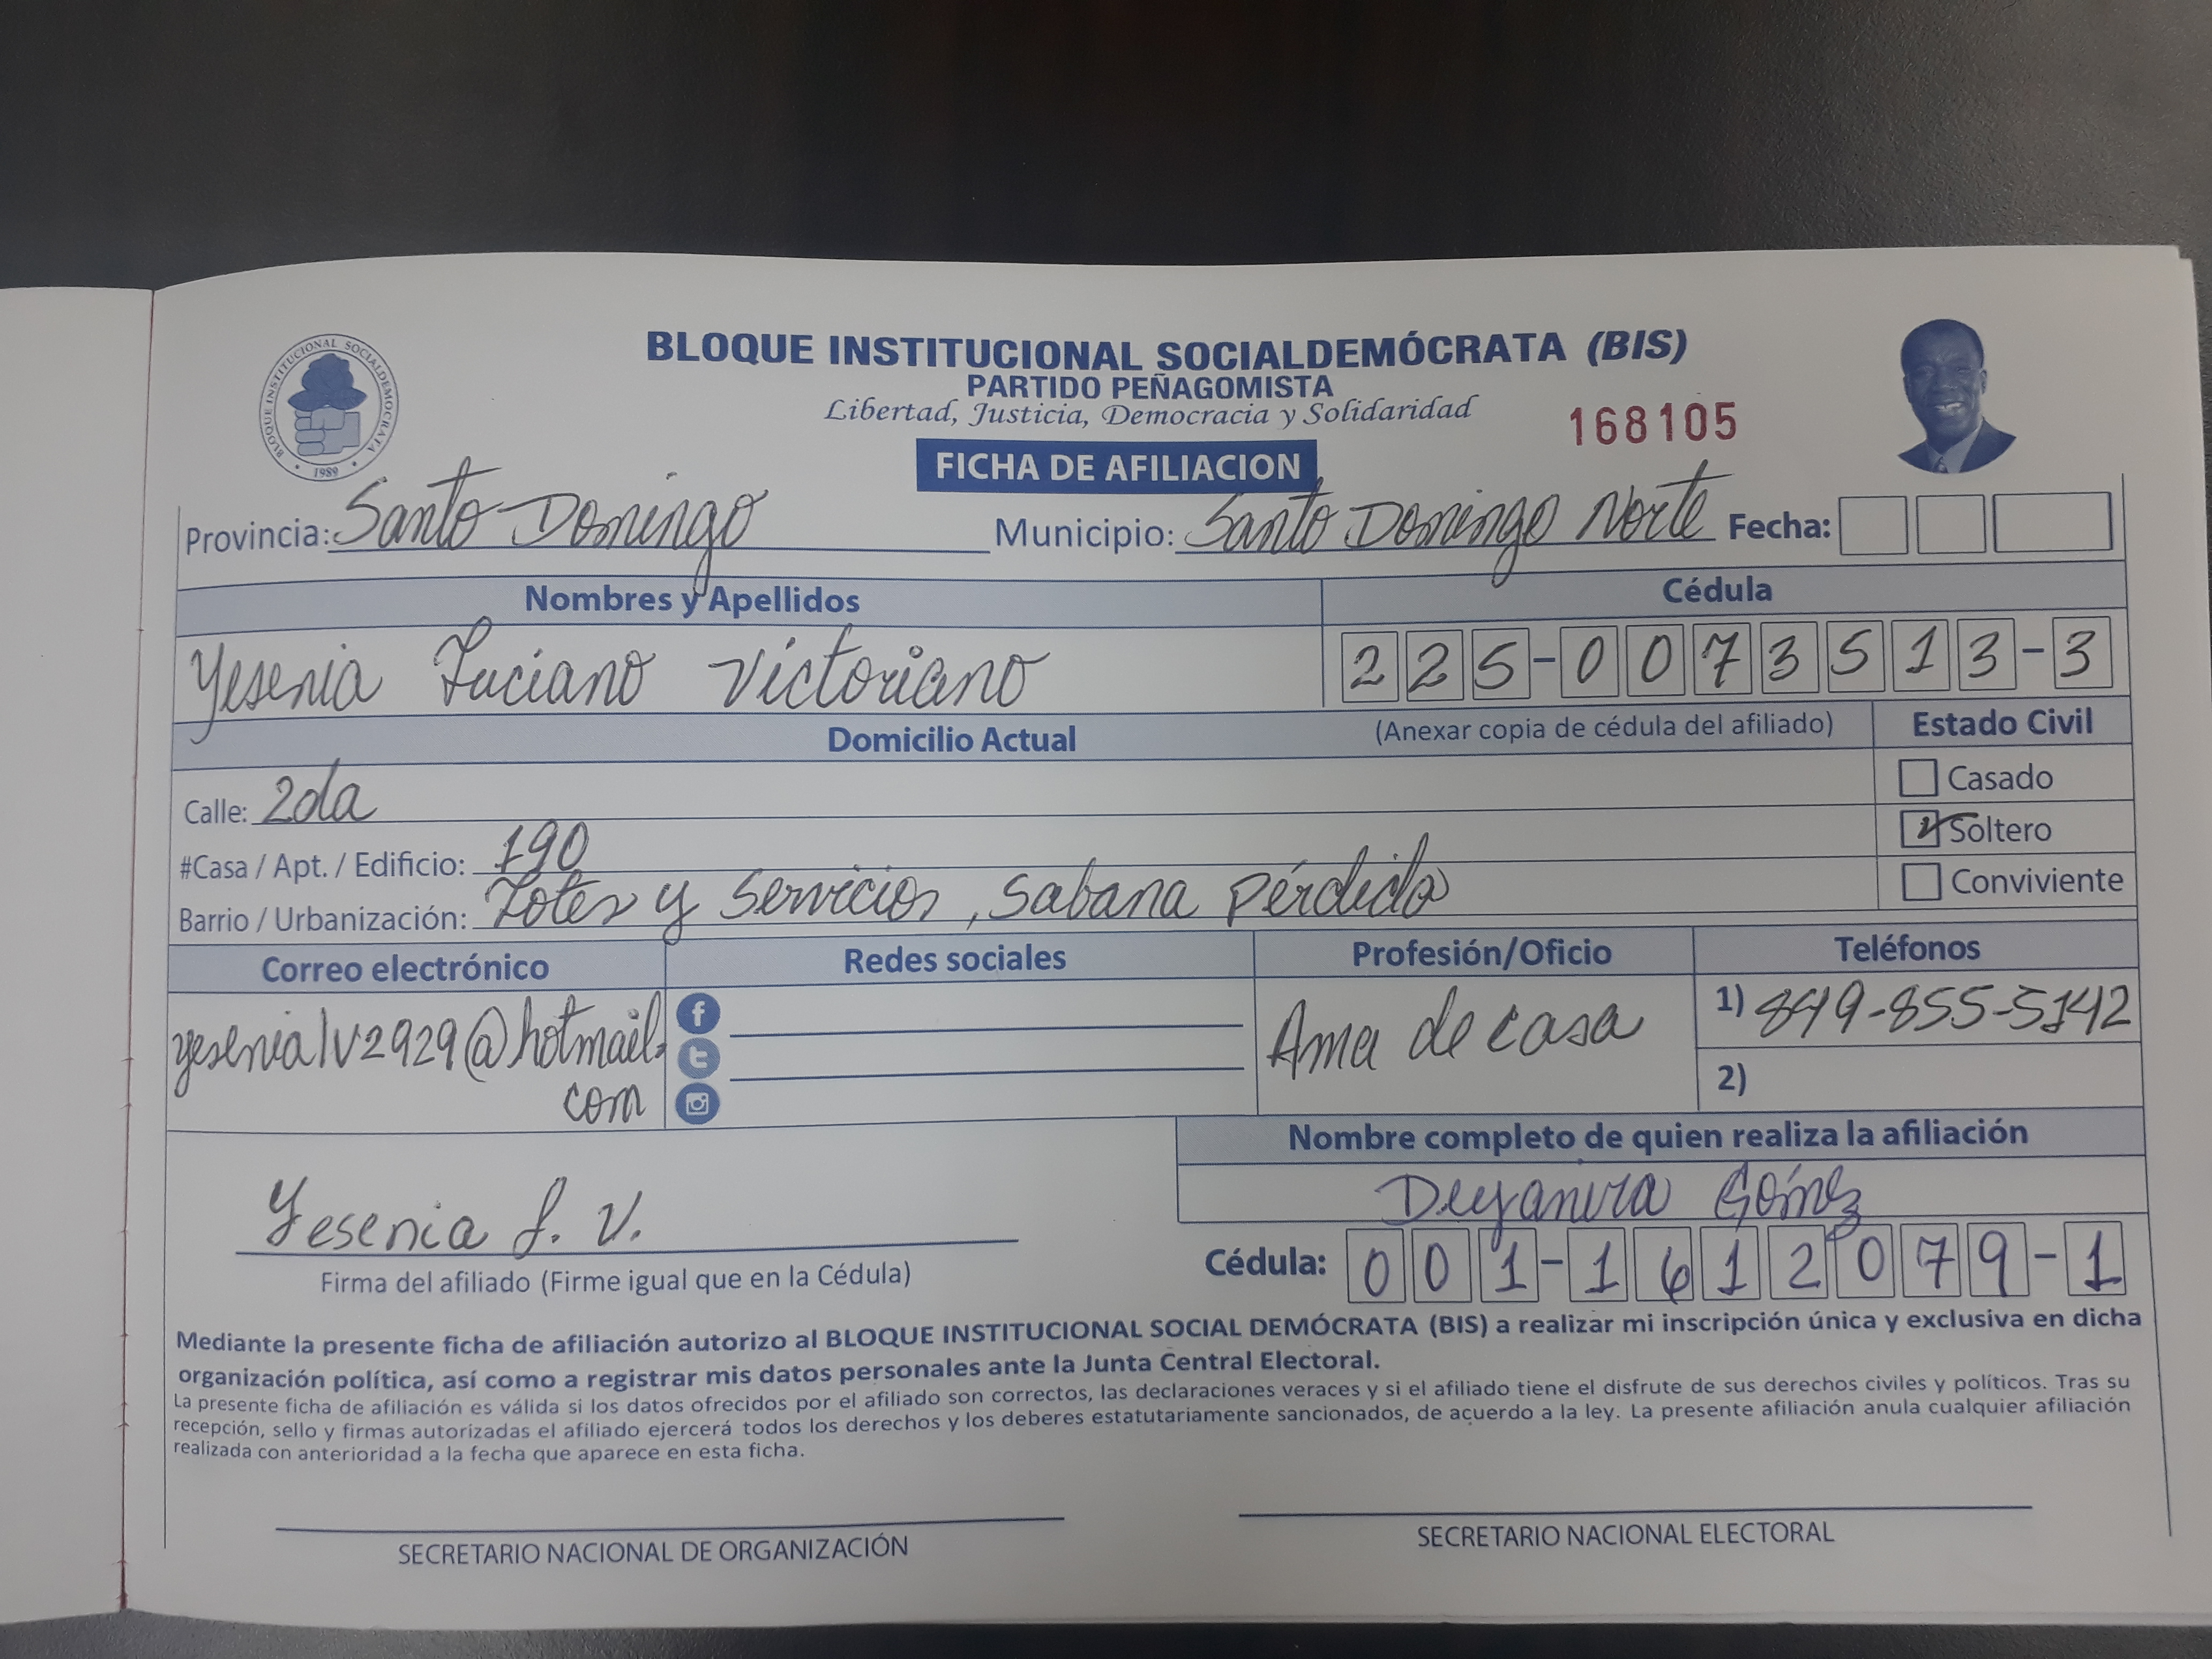 BLOQUE INSTITUCIONAL SOCIALDEMÓCRATA (BIS)
PARTIDO PEÑAGOMISTA
Libertad, Justicia, Democracia y Solidaridad
168105
BLOQUE INSTITUCIONAL SOCIALDEMOCRATA
• 1989 •
FICHA DE AFILIACION
Provincia: Santo Domingo Municipio: Santo Domingo Norte Fecha:
Nombres y Apellidos Cédula
Yesenia Luciano Victoriano 225-0073513-3
Domicilio Actual (Anexar copia de cédula del afiliado) Estado Civil
Calle: 2da
Casado
#Casa / Apt. / Edificio: 190
Soltero
Barrio / Urbanización: Lotes y Servicios, Sabana Pérdida
Conviviente
Correo electrónico Redes sociales Profesión/Oficio Teléfonos
yesenialv2929@hotmail.
com
Ama de casa
1) 849-855-5142
2)
Nombre completo de quien realiza la afiliación
Deyanira Gómez
Yesenia L. V.
Firma del afiliado (Firme igual que en la Cédula)
Cédula: 001-1612079-1
Mediante la presente ficha de afiliación autorizo al BLOQUE INSTITUCIONAL SOCIAL DEMÓCRATA (BIS) a realizar mi inscripción única y exclusiva en dicha
organización política, así como a registrar mis datos personales ante la Junta Central Electoral.
La presente ficha de afiliación es válida si los datos ofrecidos por el afiliado son correctos, las declaraciones veraces y si el afiliado tiene el disfrute de sus derechos civiles y políticos. Tras su
recepción, sello y firmas autorizadas el afiliado ejercerá todos los derechos y los deberes estatutariamente sancionados, de acuerdo a la ley. La presente afiliación anula cualquier afiliación
realizada con anterioridad a la fecha que aparece en esta ficha.
SECRETARIO NACIONAL DE ORGANIZACIÓN
SECRETARIO NACIONAL ELECTORAL